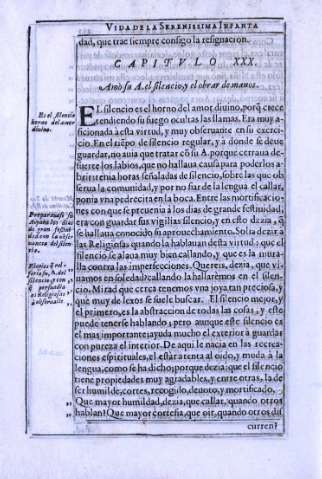 VIDA DE LA SERENISSIMA INFANTA
dad, que trae siempre consigo la resignacion.
CAPITVLO XXX.
Amò su A. el silencio, y el obrar de manos.
EL silencio es el horno del amor diuino, porq̃ crece
encendiendo su fuego ocultas las llamas. Era muy a-
ficionada à esta virtud, y muy obseruante en su exerci-
cio. En el tiẽpo de silencio regular, y a donde se deue
guardar, no auia que tratar cõ su A. porque cerraua de
suerte los labios, que no hallaua causa para poderlos a-
brir: tenia horas señaladas de silencio, sobre las que ob-
serua la comunidad, y por no fiar de la lengua el callar,
ponia vna pedrecita en la boca. Entre las mortificacio-
nes con que se preuenia à los dias de grande festiuidad,
era con guardar sus vigilias silencio, y en esto, dezia, q̃
se ballaua conocido su aprouechamiento. Solia dezir à
las Religiosas quando la hablauan desta virtud: que el
silencio se alaua muy bien callando, y que es la mura-
lla contra las imperfecciones. Quereis, dezia, que vi-
uamos en soledad? callando la hallaremos en el silen-
cio. Mirad que cerca tenemos vna joya tan preciosa, y
que muy de lexos se suele buscar. El silencio mejor, y
el primero, es la abstraccion de todas las cosas, y este
puede tenerse hablando; pero aunque este silencio es
el mas importante; ayuda mucho el exterior à guardar
con pureza el interior. De aqui le nacia en las recrea-
ciones espirituales, el estàr atenta al oido, y muda à la
lengua, como se ha dicho; porque dezia: que el silencio
tiene propiedades muy agradables, y entre otras, la de
ser humilde, cortes, recogido, deuoto, y mortificado.
Que mayor humildad, dezia, que callar, quando otros
hablan? Que mayor cortesia, que oir, quando otros dis
curren?
Es el silencio
horno del amor
diuino.
Preparauase su
A. para los dias
de gran festiui
dad con la obser
uancia del silen-
cio.
silencio, y con